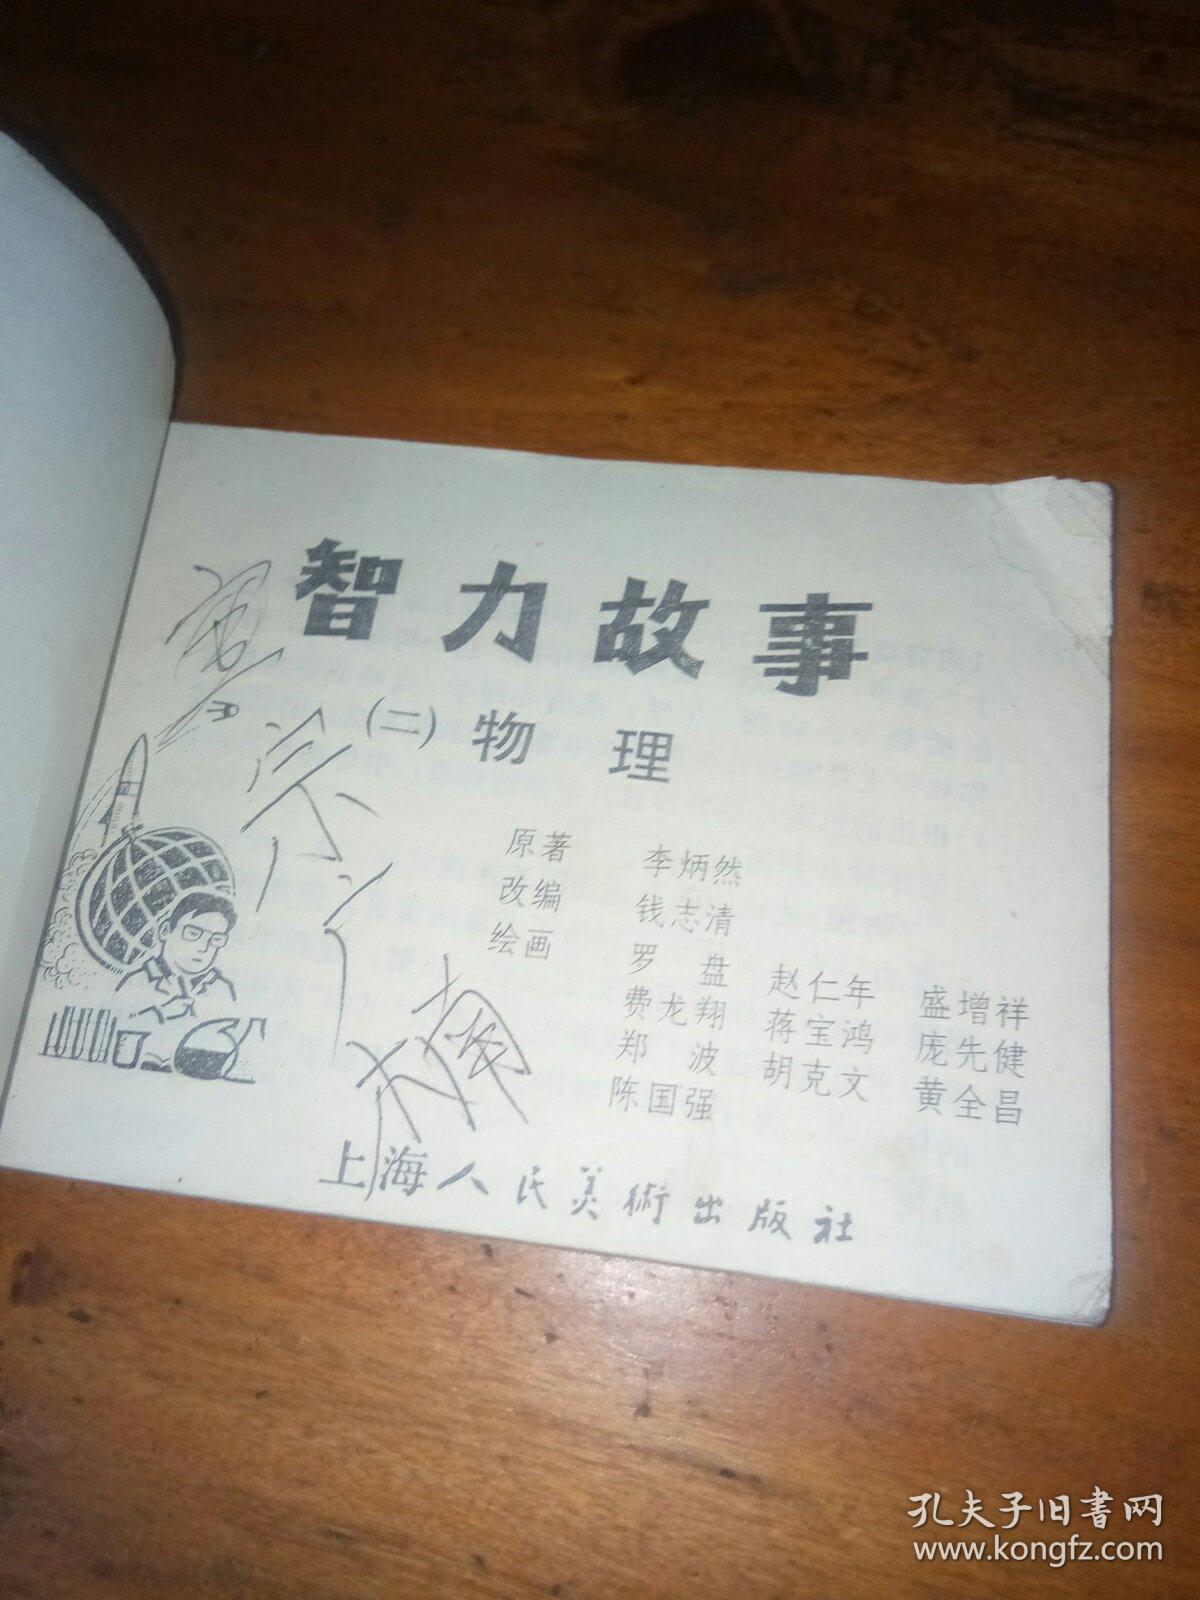 智力故事
(二)物理
原著 李炳然
改编 钱志清
绘画 罗盘 赵仁年 盛增祥
费龙翔 蒋宝鸿 庞先健
郑波 胡克文 黄全昌
陈国强
上海人民美術出版社
孔夫子旧书网
www.kongfz.com